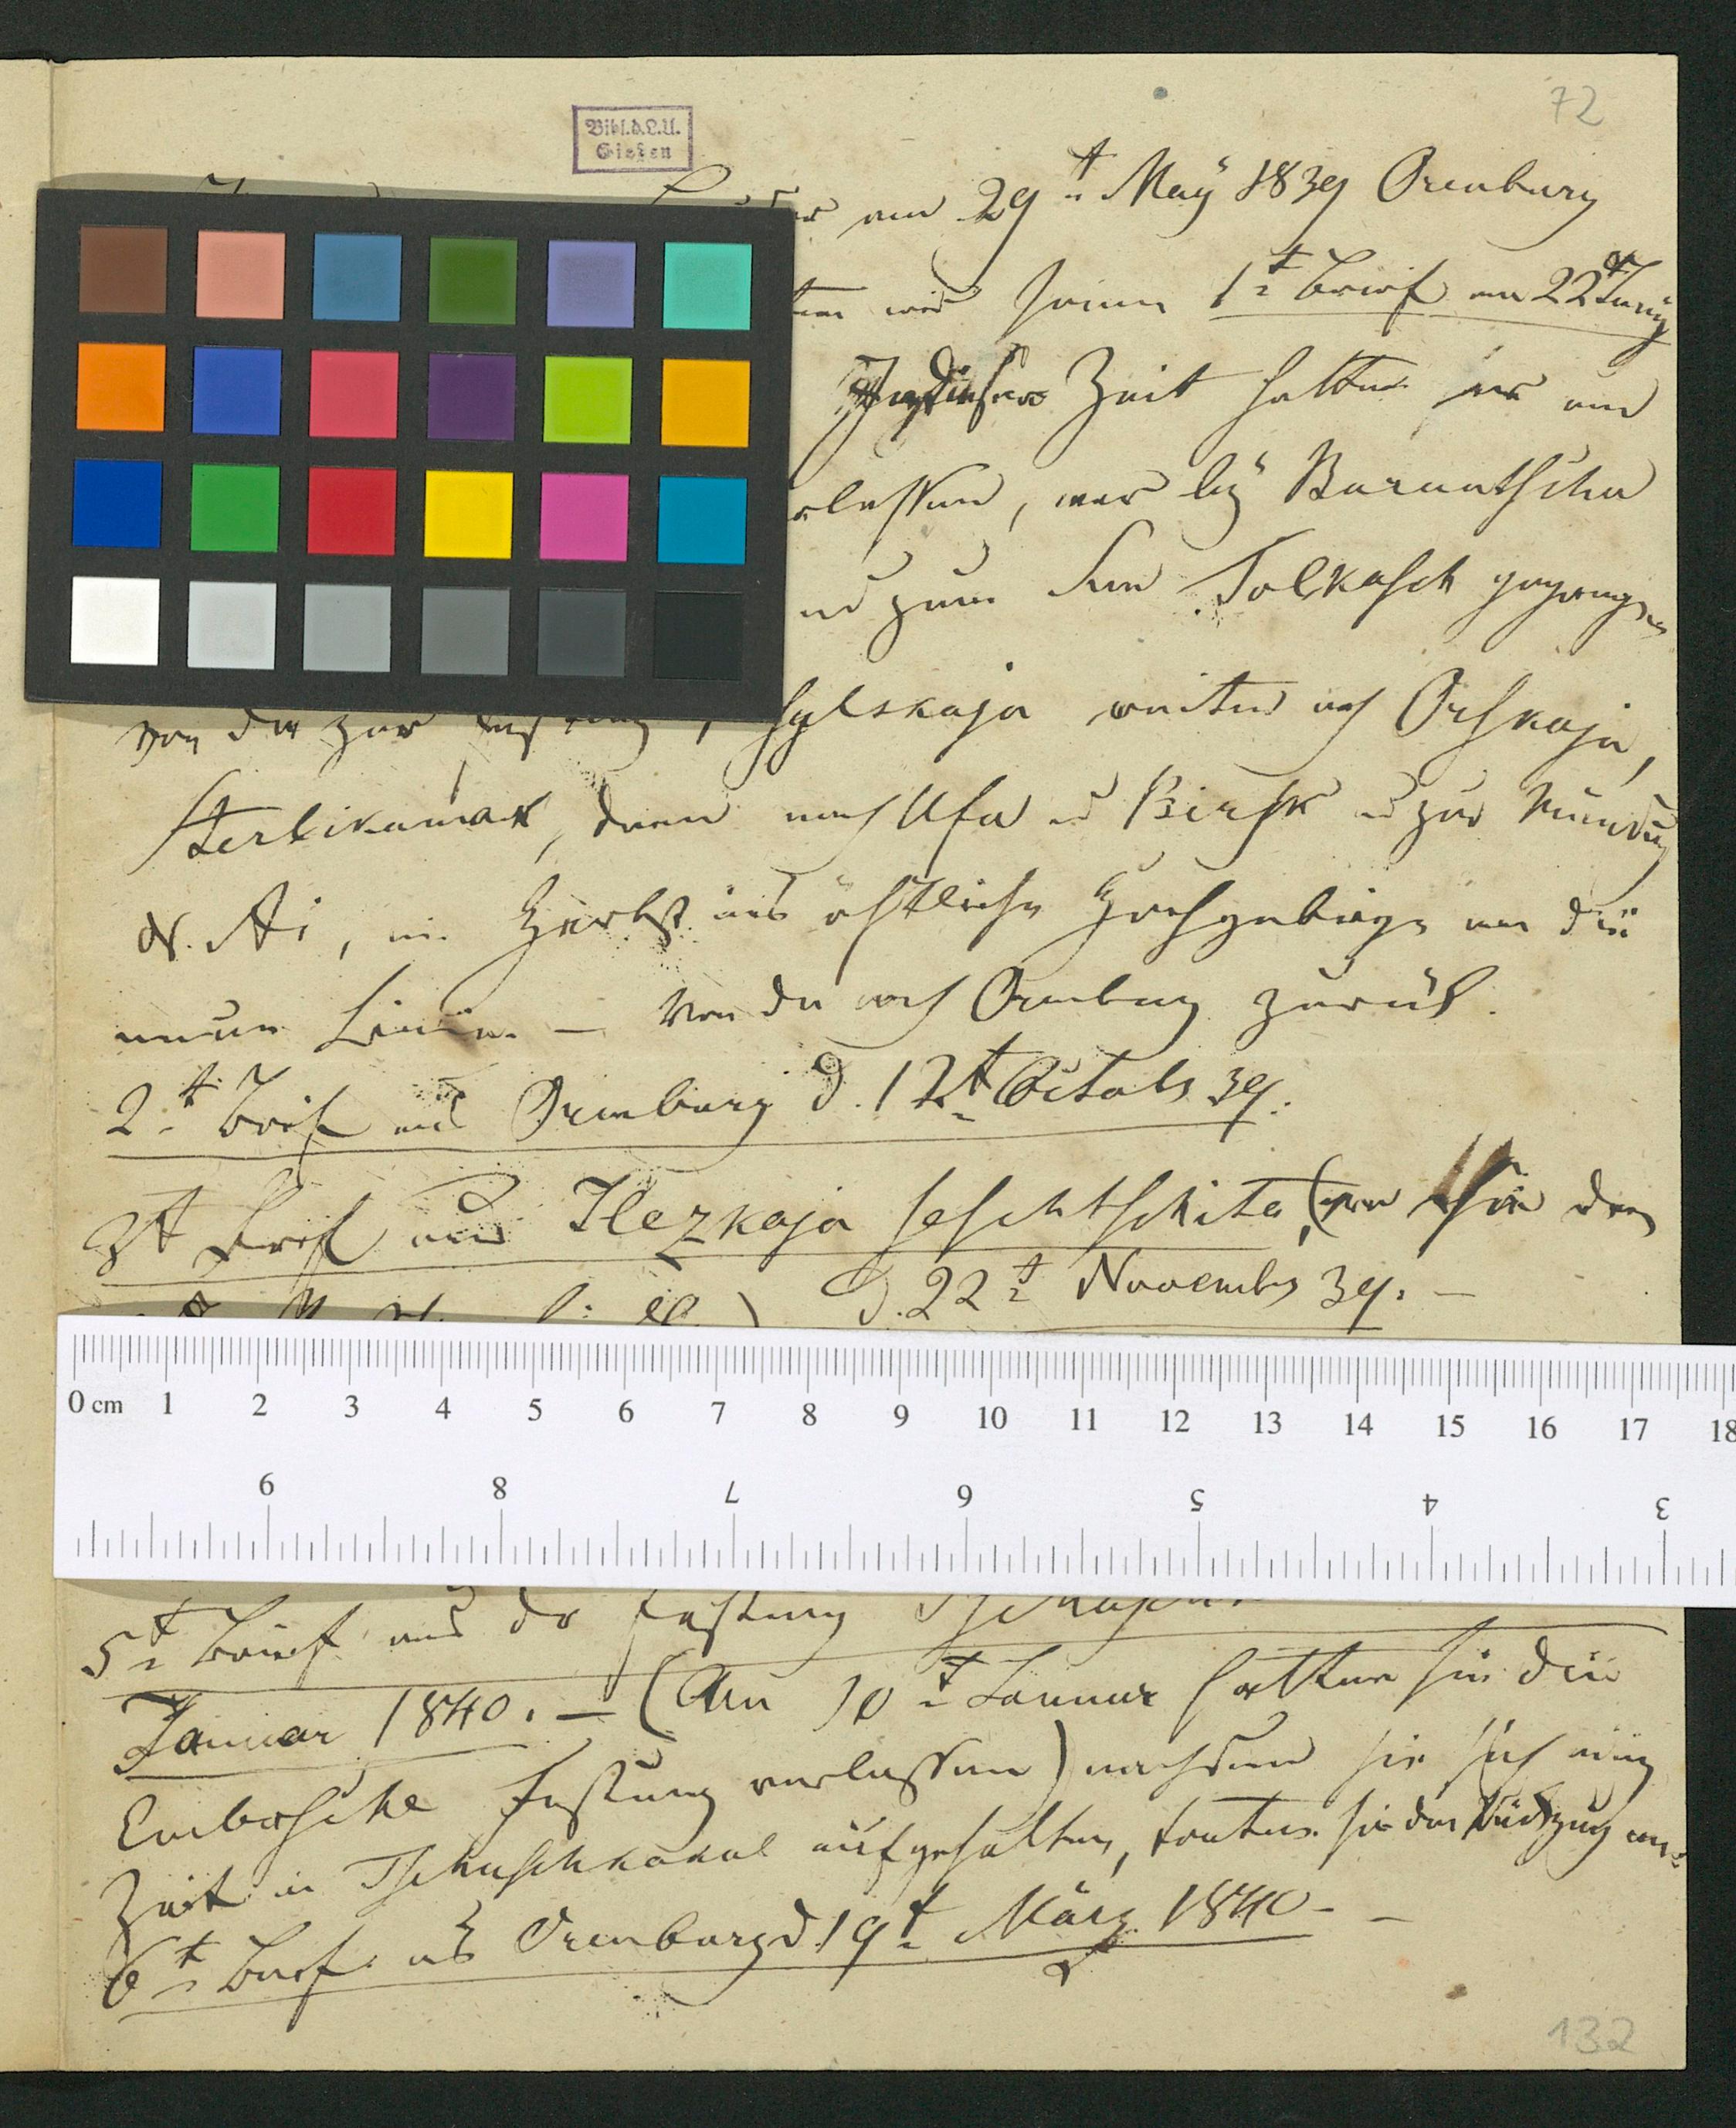 72
Bibl.d.L.U.
Gießen
am 29t May 1839 Orenburg
wir seinen 1t Brief am 22t Juny
In dieser Zeit hatten sie
rlassen, war bey Burantschu
und zum See Tolkasch gegangen
von da zur sylskaja weiter nach Orskaja,
Sterlikamak, dann nach Ufa u Birsk u zur Mündung
d. Ai, im Herbst ins östliche Hochgebirge an die
neue Linie. – Von da nach Orenburg zurück.
2t Brief aus Orenburg d. 12t Octobr 39.
3t Brief aus Ilezkaja saschtschita, (von Chiwa den
D. 22t November 39. –
0 cm 1 2 3 4 5 6 7 8 9 10 11 12 13 14 15 16 17 18
9 8 7 6 5 4 3
5t Brief aus der Festung
Januar 1840. – (Am 10t Januar hatten sie die
Embasche Festung verlassen) nachdem sie sich einig
Zeit in Tschuschkakul aufgehalten, traten sie den Rückzug an.
6t Brief aus Orenburg d. 19t März 1840 –
132